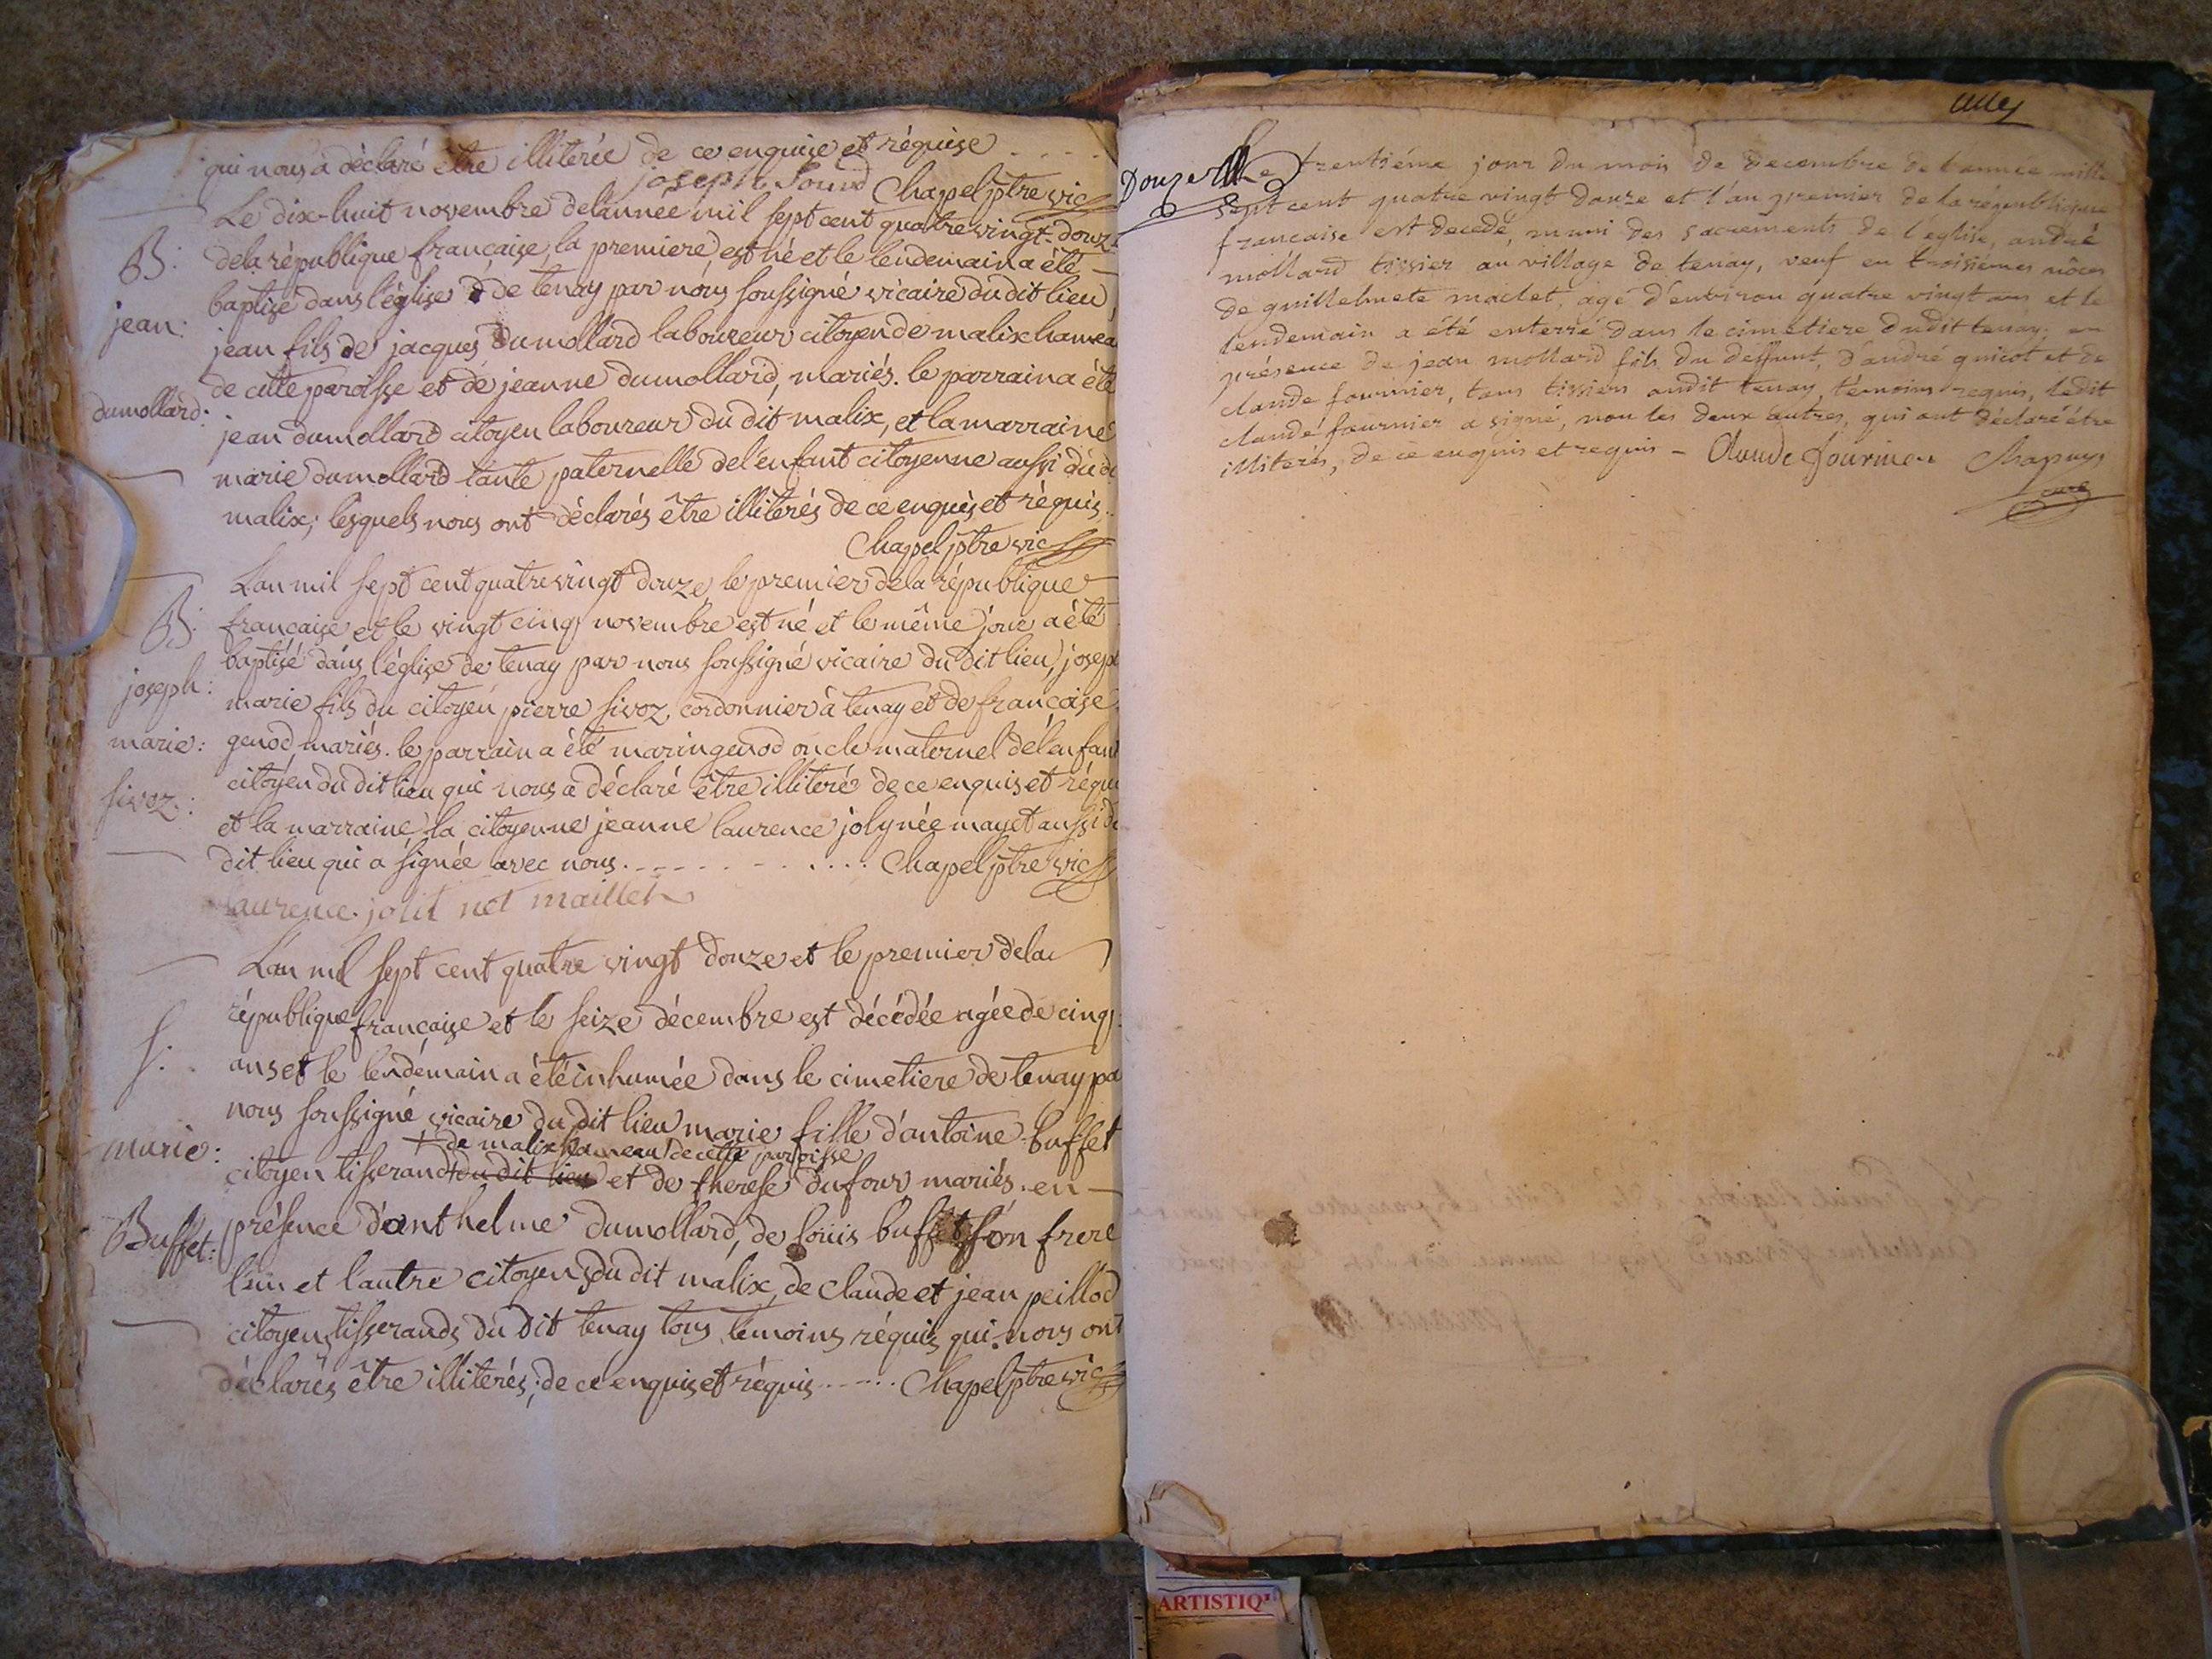 qui nous a déclaré être illiterée de ce enquise et réquise
joseph
Chapel ptre vic
Le dix-huit novembre de lannée mil sept cent quatre vingt-douz
B:
dela république française la premiere est né et le lendemain a été
baptisé dans l'église de tenay par nous soussigné vicaire du dit lieu
jean:
jean fils de jacques dumollard laboureur citoyen de malix hamea
de cette paroisse et de jeanne dumollard, mariés. le parrain a été
dumollard:
jean dumollard citoyen laboureur du dit malix, et la marraine
marie dumollard tante paternelle de l'enfant citoyenne aussi du d
malix; lesquels nous ont déclarés être illiterés de ce enquis et réquis.
Chapel ptre vic
Lan mil sept cent quatre vingt douze, le premier dela république
B:
française et le vingt cinq novembre est né et le même jour a été
baptisé dans l'église de tenay par nous soussigné vicaire du dit lieu, joseph
joseph:
marie fils du citoyen pierre sivoz, cordonnier à tenay et de françoise
marie:
genod mariés. le parrain a été marin genod oncle maternel de l'enfant
citoyen du dit lieu qui nous a déclaré être illiteré de ce enquis et réqui
sivoz:
et la marraine la citoyenne jeanne laurence joly née mayet aussi d
dit lieu qui a signée avec nous. Chapel ptre vic
laurence jolit net maillet
L'an mil sept cent quatre vingt douze et le premier dela
république française et le seize décembre est décédée agée de cinq
S:
ans et le lendemain a été inhumée dans le cimetiere de tenay pa
nous soussigné vicaire du dit lieu marie fille d'antoine buffet
+ de malix hameau de cette paroisse
marie:
citoyen tisserand + du dit lieu et de therese dufour mariés. en
Buffet:
présence d'anthelme dumollard, de louis buffet son frere
l'un et l'autre citoyens du dit malix, de claude et jean peillod
citoyens tisserands du dit tenay tous témoins réquis qui nous ont
déclarés être illiterés; de ce enquis et réquis Chapel ptre vic
Douze
Le trentiéme jour du mois de decembre de l'annee mille
sept cent quatre vingt douze et l'an premier de la république
francaise est decedé, muni des sacrements de l'église, andré
mollard tissier au village de tenay, veuf en troisiemes nôces
de guillelmete maclet, agé d'environ quatre vingt ans et le
lendemain a été enterré dans le cimetiere dudit tenay; en
présence de jean mollard fils du deffunt, d'andré guicot et de
claude fournier, tous tissiers audit tenay, témoins requis, ledit
claude fournier a signé, non les deux autres, qui ont déclaré être
illiterés, de ce enquis et requis - Claude fournier Chapuys
curé
ARTISTIQ